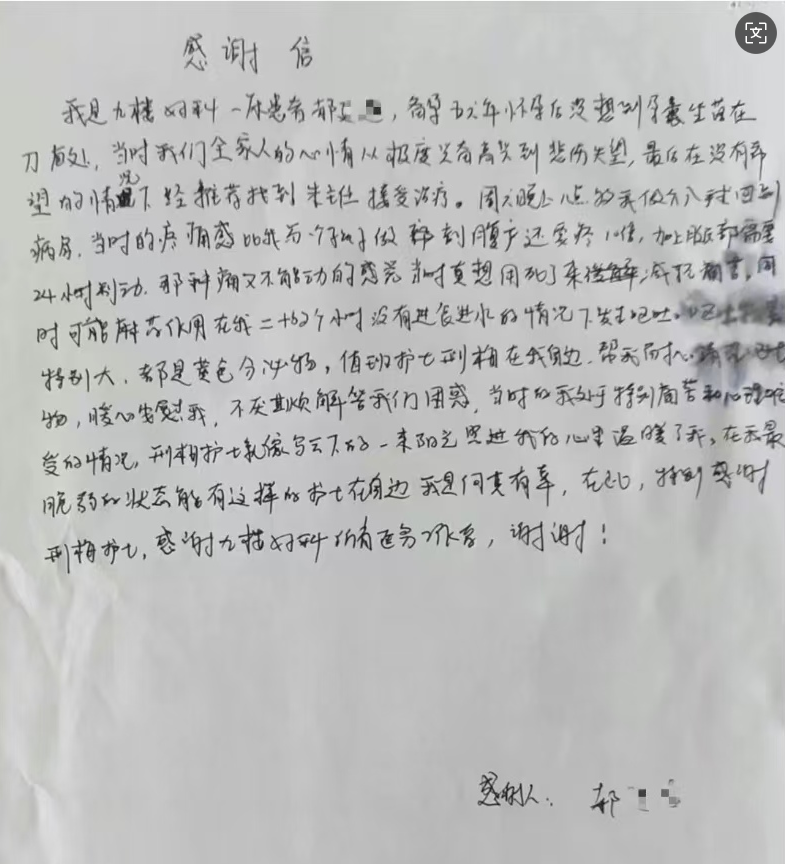 感谢信
我是九楼妇科一床患者郝，备孕五六年怀孕后没想到孕囊生长在
刀疤处，当时我们全家人的心情从极度兴奋高兴到悲伤失望，最后在没有希
望的情况下经推荐找到朱主任接受治疗。周六晚上八点多我做介入手术回到
病房，当时的疼痛感比我第一个孩子做剖腹产还要疼10倍，加上腿部需要
24小时制动，那种痛又不能动的感觉当时真想用死了来缓解减轻痛苦，同
时可能麻药作用在我二十多个小时没有进食进水的情况下发生呕吐。
特别大，都是黄色分泌物，值班护士邢梅在我身边帮我
物，暖心安慰我，不厌其烦解答我们困惑，当时的我处于特别痛苦和心理难
受的情况，邢梅护士就像乌云下的一束阳光照进我的心里温暖了我，在我最
脆弱的状态能有这样的护士在身边我是何其有幸，在此，特别感谢
邢梅护士，感谢九楼妇科所有医务工作者，谢谢！
感谢人：郝